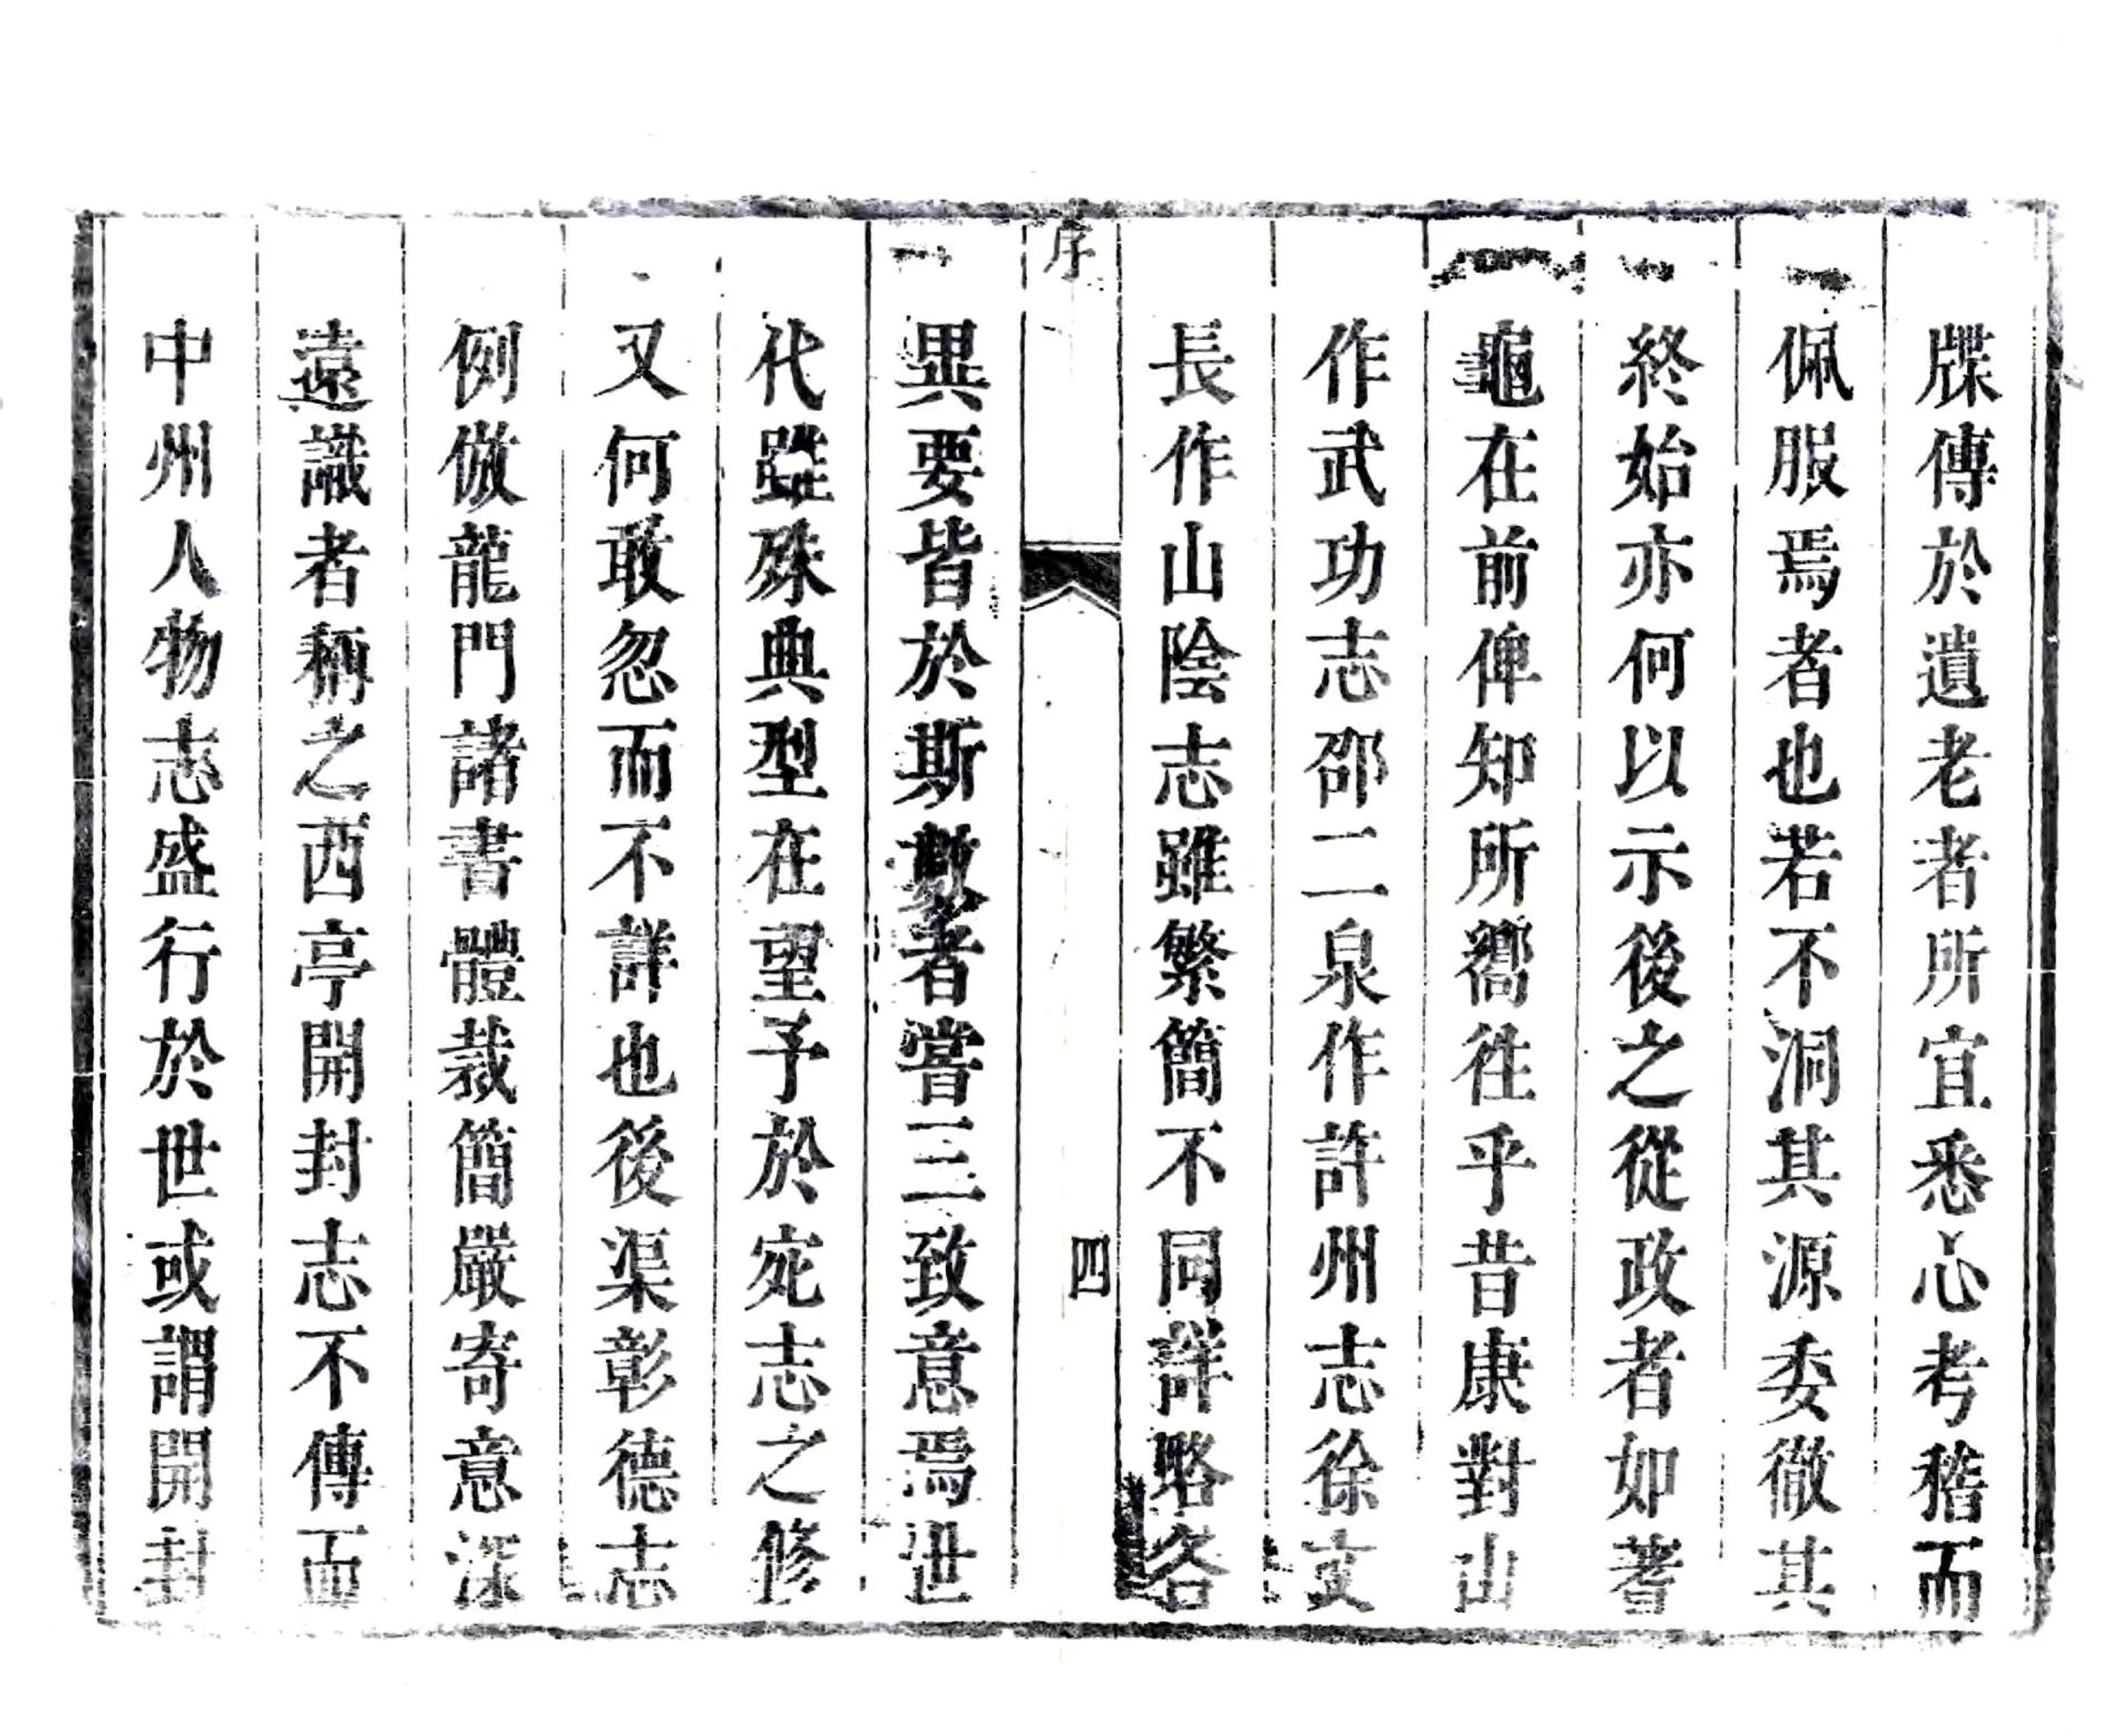 牒傳於遺老者所宜悉心考稽而
佩服焉者也若不洞其源委徹其
終始亦何以示後之從政者如蓍
龜在前俾知所嚮徃乎昔康對山
作武功志邵二泉作許州志徐文
長作山陰志雖繁簡不同詳略各
序
四
異要皆於斯數者嘗三致意焉世
代雖殊典型在望予於宛志之修
又何敢忽而不詳也後渠彰德志
例倣龍門諸書體裁簡嚴寄意深
遠識者稱之西亭開封志不傳而
中州人物志盛行於世或謂開封